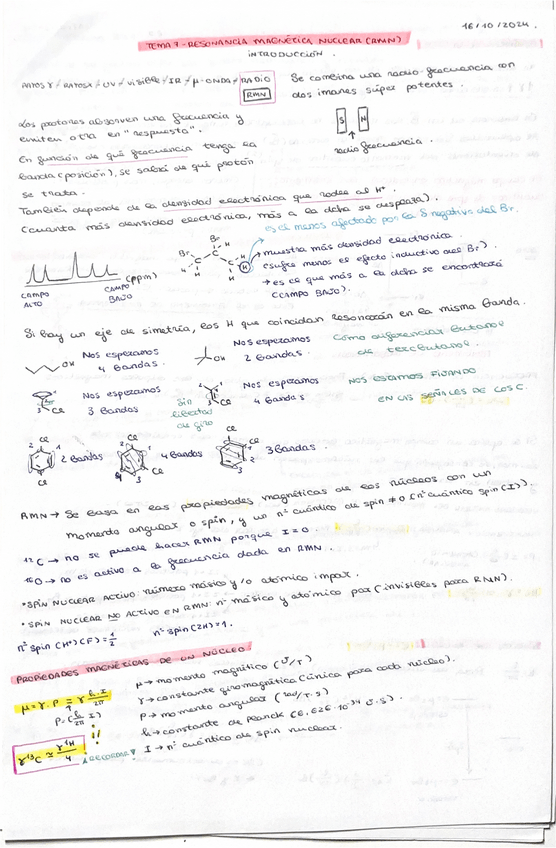 16/10/2024.
TEMA 7-RESONANCIA MAGNÉTICA NUCLEAR (RMN)
INTRODUCCIÓN.
RAYOS γ / RAYOSX / UV / VISIBLE / IR / μ-ONDA / RADIO
RMN
Se combina una radio frecuencia con
dos imanes súper potentes.
S N
radio frecuencia.
Los protones absorven una frecuencia y
emiten otra en "respuesta".
En función de qué frecuencia tenga la
banda (posición), se sabrá de qué protón
se trata.
También depende de la densidad electrónica que rodee al H⁺.
(cuanta más densidad electrónica, más a la dcha se desplaza).
es el menos afectado por la δ negativa del Br.
Br Br H
C C C H
H H H
→ muestra más densidad electrónica.
(sufre menos el efecto inductivo del Br)
→ es el que más a la dcha se encontrará
(CAMPO BAJO).
(ppm)
CAMPO ALTO
CAMPO BAJO
Si hay un eje de simetría, los H que coincidan resonarán en la misma banda.
OH
Nos esperamos
4 bandas.
OH
Nos esperamos
2 bandas.
Cómo diferenciar butanol
de tercbutanol.
Cl
Nos esperamos
3 bandas
sin
libertad
de giro
Cl
Nos esperamos
4 bandas
NOS ESTAMOS FIJANDO
EN LAS SEÑALES DE LOS C.
Cl Cl 2 bandas
Cl Cl 4 bandas
Cl Cl 3 bandas.
RMN → Se basa en las propiedades magnéticas de los núcleos con un
momento angular o spin, y un nº cuántico de spin ≠ 0 (nº cuántico spin (I)).
¹²C → no se puede hacer RMN porque I = 0.
¹⁶O → no es activo a la frecuencia dada en RMN.
*SPIN NUCLEAR ACTIVO: número másico y/o atómico impar.
*SPIN NUCLEAR NO ACTIVO EN RMN: nº másico y atómico par (invisibles para RMN).
nº spin (H⁺) (F) = 1/2 nº spin (2H) = 1.
PROPIEDADES MAGNÉTICAS DE UN NÚCLEO:
μ = γ · P = γ h·I/2π
P = (h/2π I)
γ¹³C ≃ γ¹H/4
¡RECORDAR!
μ → momento magnético (J/T)
γ → constante giromagnética (única para cada núcleo).
P → momento angular (rad/T·s)
h → constante de Planck (6,626·10⁻³⁴ J·s).
I → nº cuántico de spin nuclear.